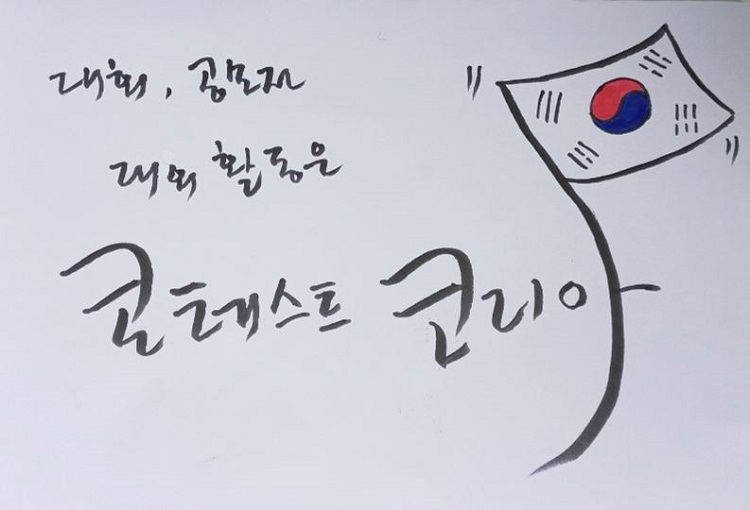 대회, 공모전
대외 활동은
콘테스트 코리아